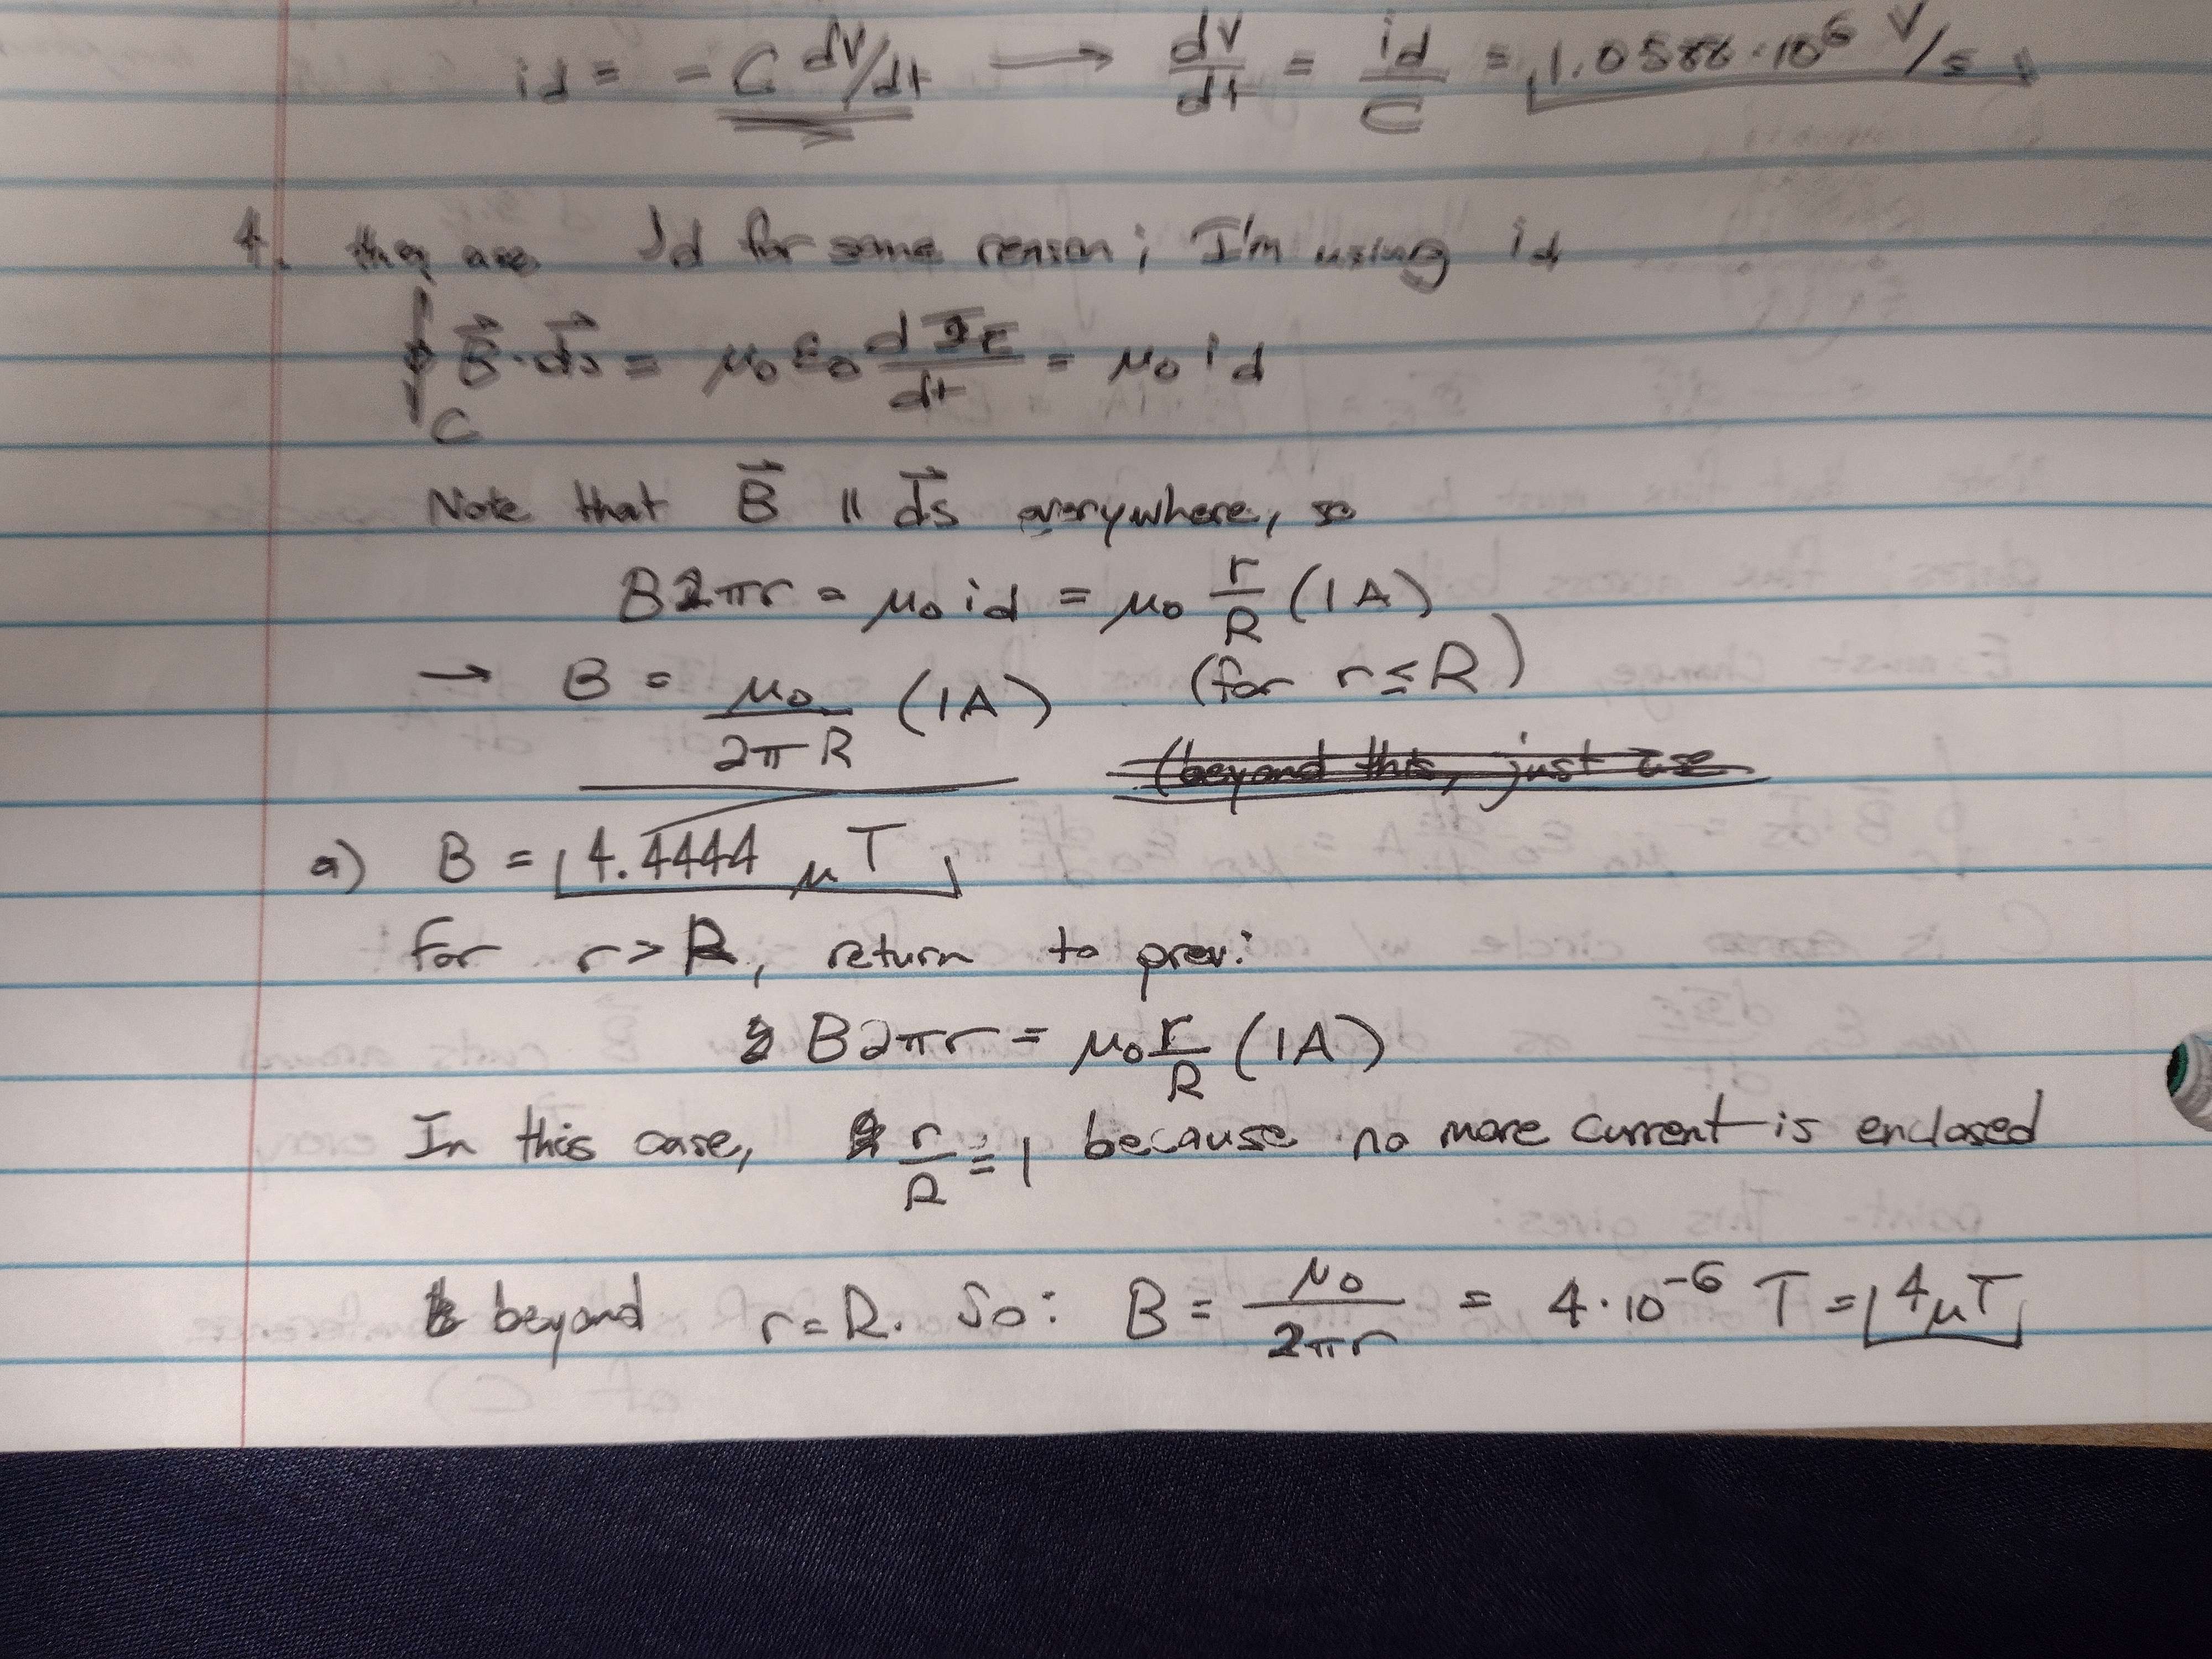 id = - C dV/dt → dV/dt = id/C = 1.0588·10⁶ V/s
4. they use Jd for some reason; I'm using id
∮_C B⃗·ds⃗ = μ₀ε₀ dΦE/dt = μ₀ id
Note that B⃗ || ds⃗ everywhere, so
B2πr = μ₀ id = μ₀ r/R (1A)
→ B = μ₀/2πR (1A) (for r≤R)
(beyond this, just use
a) B = 4.4444 μT
For r > R, return to prev:
B2πr = μ₀ r/R (1A)
In this case, r/R = 1 because no more current is enclosed
beyond r=R. So: B = μ₀/2πr = 4·10⁻⁶ T = 4μT